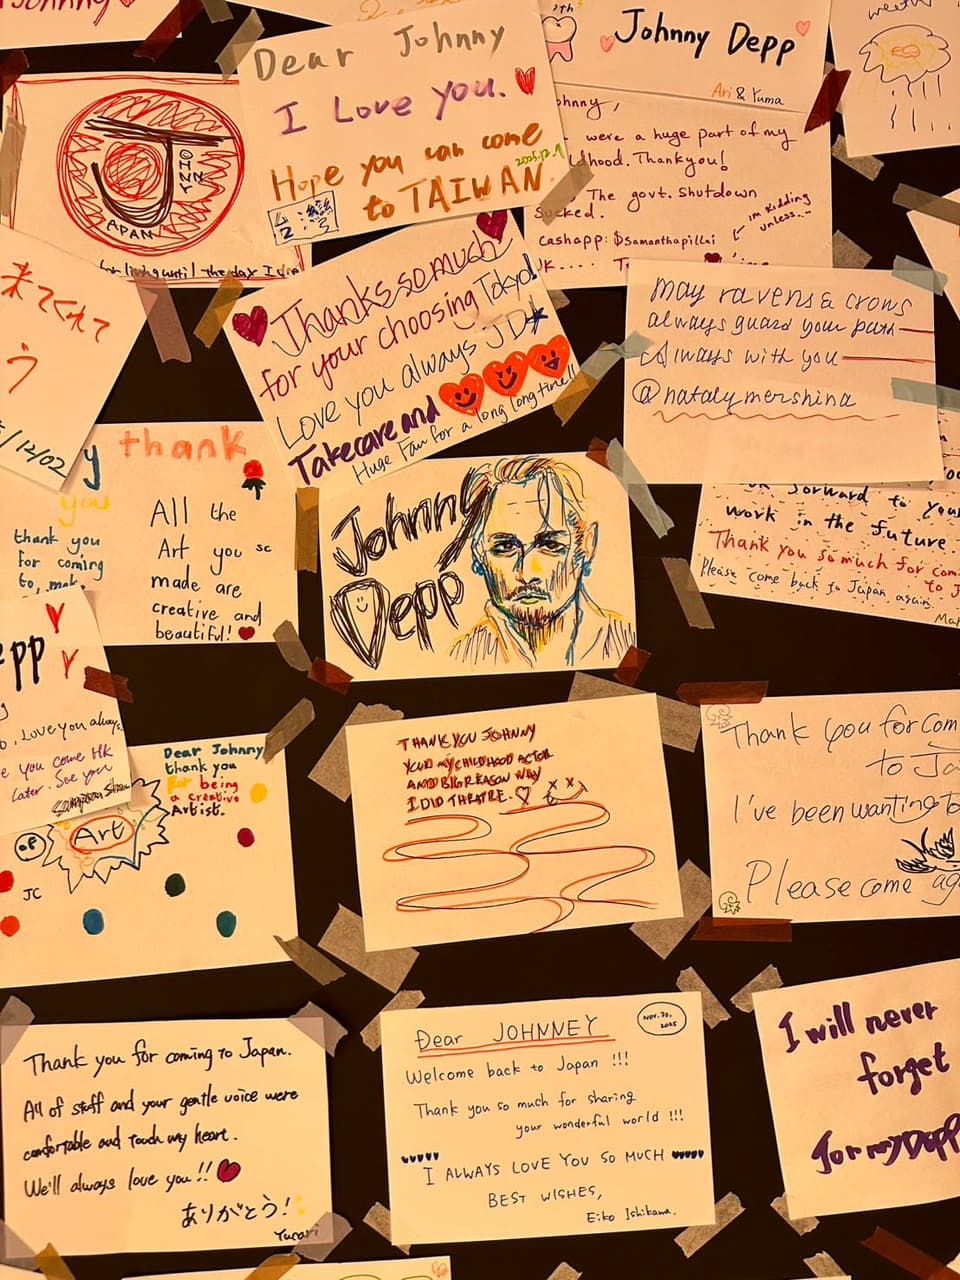 Dear Johnny
I Love you.
Hope you can come
2025.12.1
to TAIWAN.
Johnny Depp
Ari & Yuma
J
OHNNY
JAPAN
until the day I die
were a huge part of my
Thankyou!
The govt. shutdown
sucked.
im kidding
unless...
cashapp: $samanthapillai
来てくれて
う
/12/02
Thanks so much
for your choosing Tokyo!
Love you always JD
Take care and
Huge Fan for a long long time!!
may ravens & crows
always guard your path
Always with you
@natalymershina
forward to your
work in the future.
Thank you so much for com
to J
Please come back to Japan again.
thank
y
you
thank you
for coming
to,
All the
Art you
made are
creative and
beautiful!
Johnny
Depp
epp
Love you always
you come HK
later. See you
Dear Johnny
thank you
for being
a creative
Artist.
OF
Art
JC
THANK YOU JOHNNY
YOUR MY CHILDHOOD ACTOR
AND BIG REASON WHY
I DID THEATRE.
Thank you for com
to Ja
I've been wanting to
Please come ag
Thank you for coming to Japan.
All of staff and your gentle voice were
comfortable and touch my heart.
We'll always love you!!
ありがとう!
Yunari
Dear JOHNNEY
NOV. 30,
2025
Welcome back to Japan !!!
Thank you so much for sharing
your wonderful world !!!
I ALWAYS LOVE YOU SO MUCH
BEST WISHES,
Eiko Ishikawa.
I will never
forget
Johnny Depp